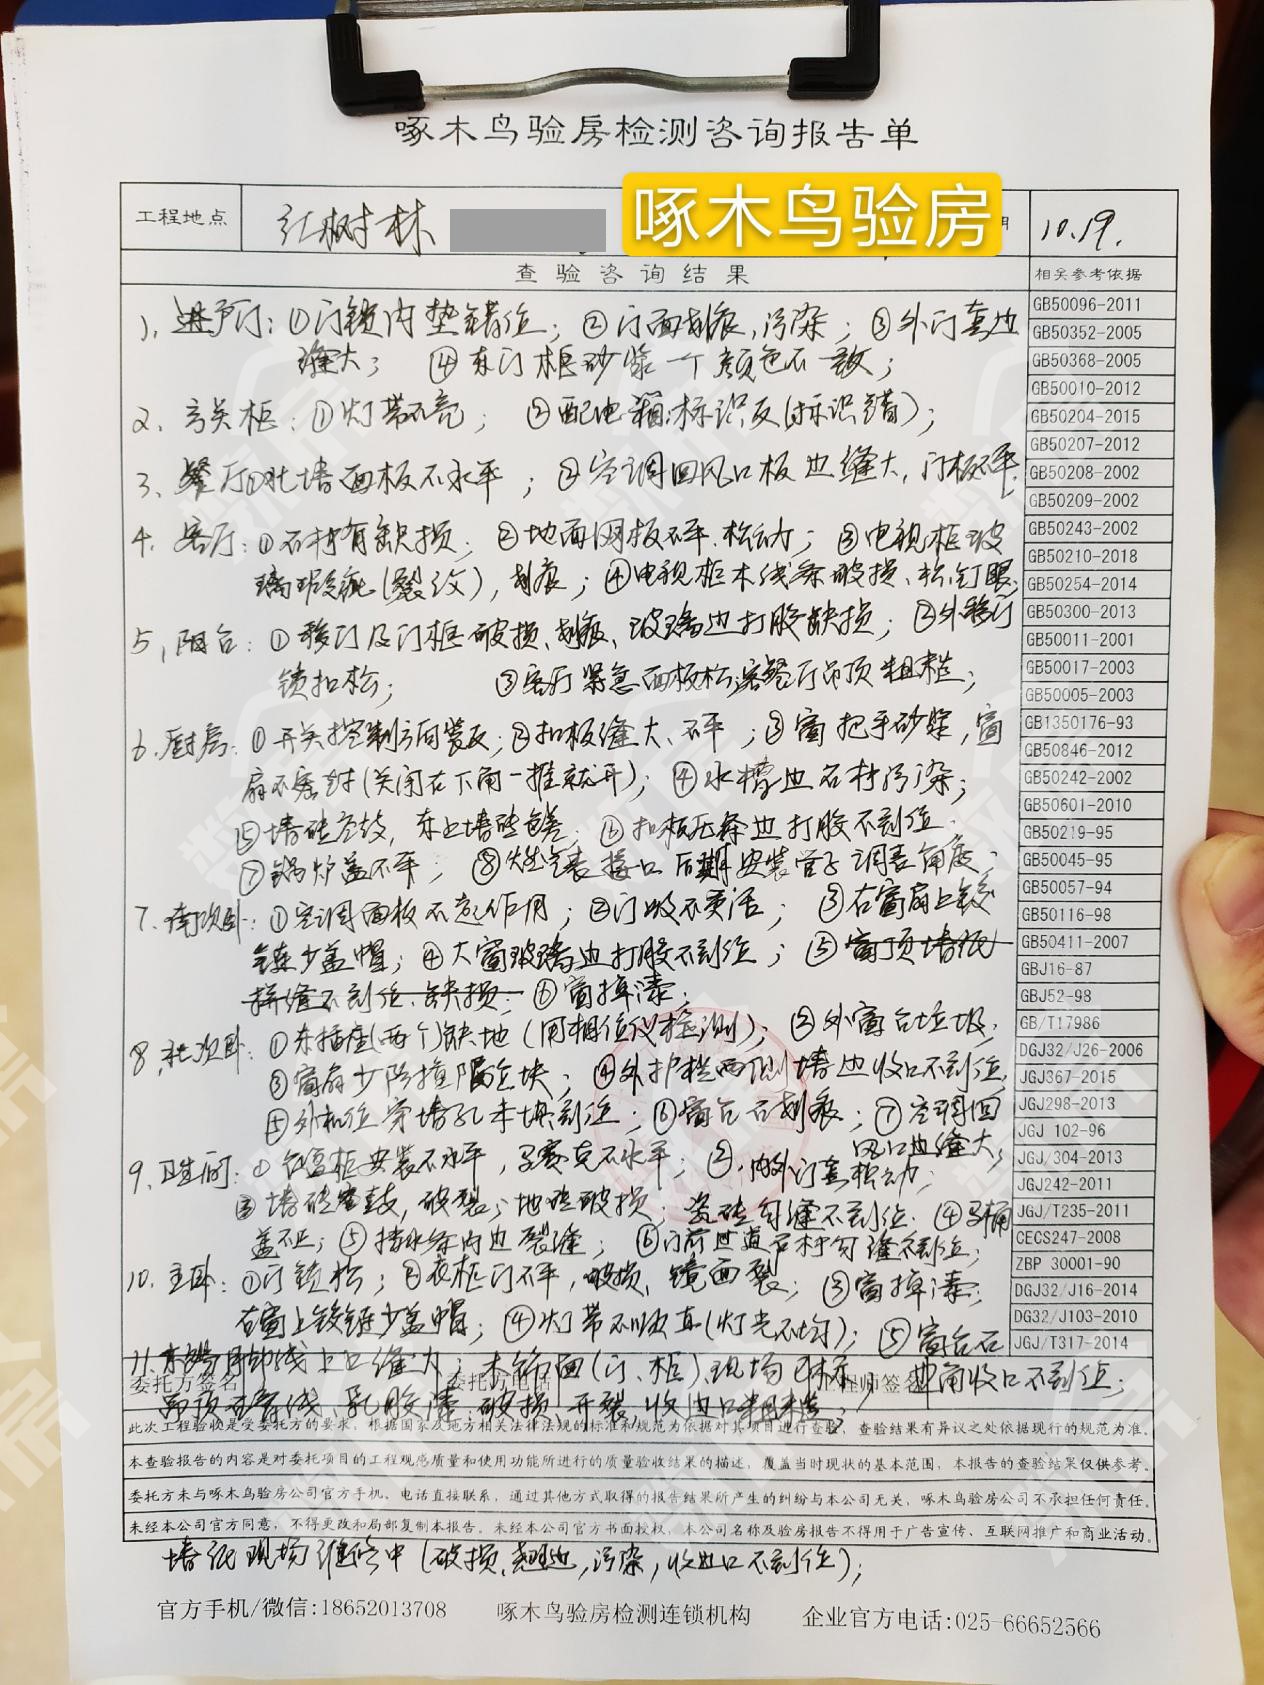 啄木鸟验房检测咨询报告单
工程地点 红树林 啄木鸟验房 期 10.19.
查验咨询结果 相关参考依据
1、进户门:①门锁内垫错位;②门面划痕,污染;③外门套边
缝大;④东门框砂浆一个颜色不一致;
2、玄关柜:①灯带不亮;②配电箱标识反(标识错);
3、餐厅①北墙面板不水平;②空调回风口板边缝大,门板不平;
4、客厅:①石材有缺损;②地面网板不平、松动;③电视柜玻
璃瑕疵(裂纹),划痕;④电视柜木线条破损、松,钉眼;
5、阳台:①移门及门框破损、划痕、玻璃边打胶缺损;②外移门
锁扣松;③客厅紧急面板松,客餐厅吊顶粗糙;
6、厨房:①开关控制方向装反;②扣板缝大、不平;③窗把手砂浆,窗
扇不密封(关闭右下角一推就开);④水槽边石材污染;
⑤墙砖空鼓,东北墙砖色差;⑥扣板压条边打胶不到位;
⑦锅炉盖不平;⑧燃气表接口后期安装管子调表角度;
7、南次卧:①空调面板不起作用;②门吸不灵活;③右窗扇上铰
链少盖帽;④大窗玻璃边打胶不到位;⑤窗顶墙纸
拼缝不到位、缺损;⑥窗掉漆;
8、北次卧:①东插座(两个)缺地(用相位仪检测);②外窗台垃圾;
③窗扇少防撞限位块;④外护栏两侧墙边收口不到位;
⑤外机位穿墙孔未填到位;⑥窗台石划痕;⑦空调回
风口边缝大;
9、卫生间:①台盆柜安装不水平,马赛克不水平;②内外门套松动;
③墙砖空鼓,破裂;地砖破损;瓷砖勾缝不到位;④马桶
盖不正;⑤挡水条内边裂缝;⑥门前过道石材勾缝不到位;
10、主卧:①门锁松;②衣柜门不平,破损、镜面裂;③窗掉漆;
右窗上铰链少盖帽;④灯带不顺直(灯光不均);⑤窗台石
11、踢脚线上口缝大;木饰面(门、柜)现场 阳角收口不到位;
委托方签名 委托方电话 工程师签名
吊顶石膏线、乳胶漆:破损,开裂,收边口粗糙;
此次工程验收是受委托方的要求,根据国家及地方相关法律法规的标准和规范为依据对其项目进行查验,查验结果有异议之处依据现行的规范为准。
本查验报告的内容是对委托项目的工程观感质量和使用功能所进行的质量验收结果的描述,覆盖当时现状的基本范围,本报告的查验结果仅供参考。
委托方未与啄木鸟验房公司官方手机、电话直接联系,通过其他方式取得的报告结果所产生的纠纷与本公司无关,啄木鸟验房公司不承担任何责任。
未经本公司官方同意,不得更改和局部复制本报告。未经本公司官方书面授权,本公司名称及验房报告不得用于广告宣传、互联网推广和商业活动。
墙纸现场维修中(破损、翘边,污染,收边口不到位);
官方手机/微信:18652013708 啄木鸟验房检测连锁机构 企业官方电话:025-66652566
GB50096-2011
GB50352-2005
GB50368-2005
GB50010-2012
GB50204-2015
GB50207-2012
GB50208-2002
GB50209-2002
GB50243-2002
GB50210-2018
GB50254-2014
GB50300-2013
GB50011-2001
GB50017-2003
GB50005-2003
GB1350176-93
GB50846-2012
GB50242-2002
GB50601-2010
GB50219-95
GB50045-95
GB50057-94
GB50116-98
GB50411-2007
GBJ16-87
GBJ52-98
GB/T17986
DGJ32/J26-2006
JGJ367-2015
JGJ298-2013
JGJ 102-96
JGJ/304-2013
JGJ242-2011
JGJ/T235-2011
CECS247-2008
ZBP 30001-90
DGJ32/J16-2014
DG32/J103-2010
JGJ/T317-2014